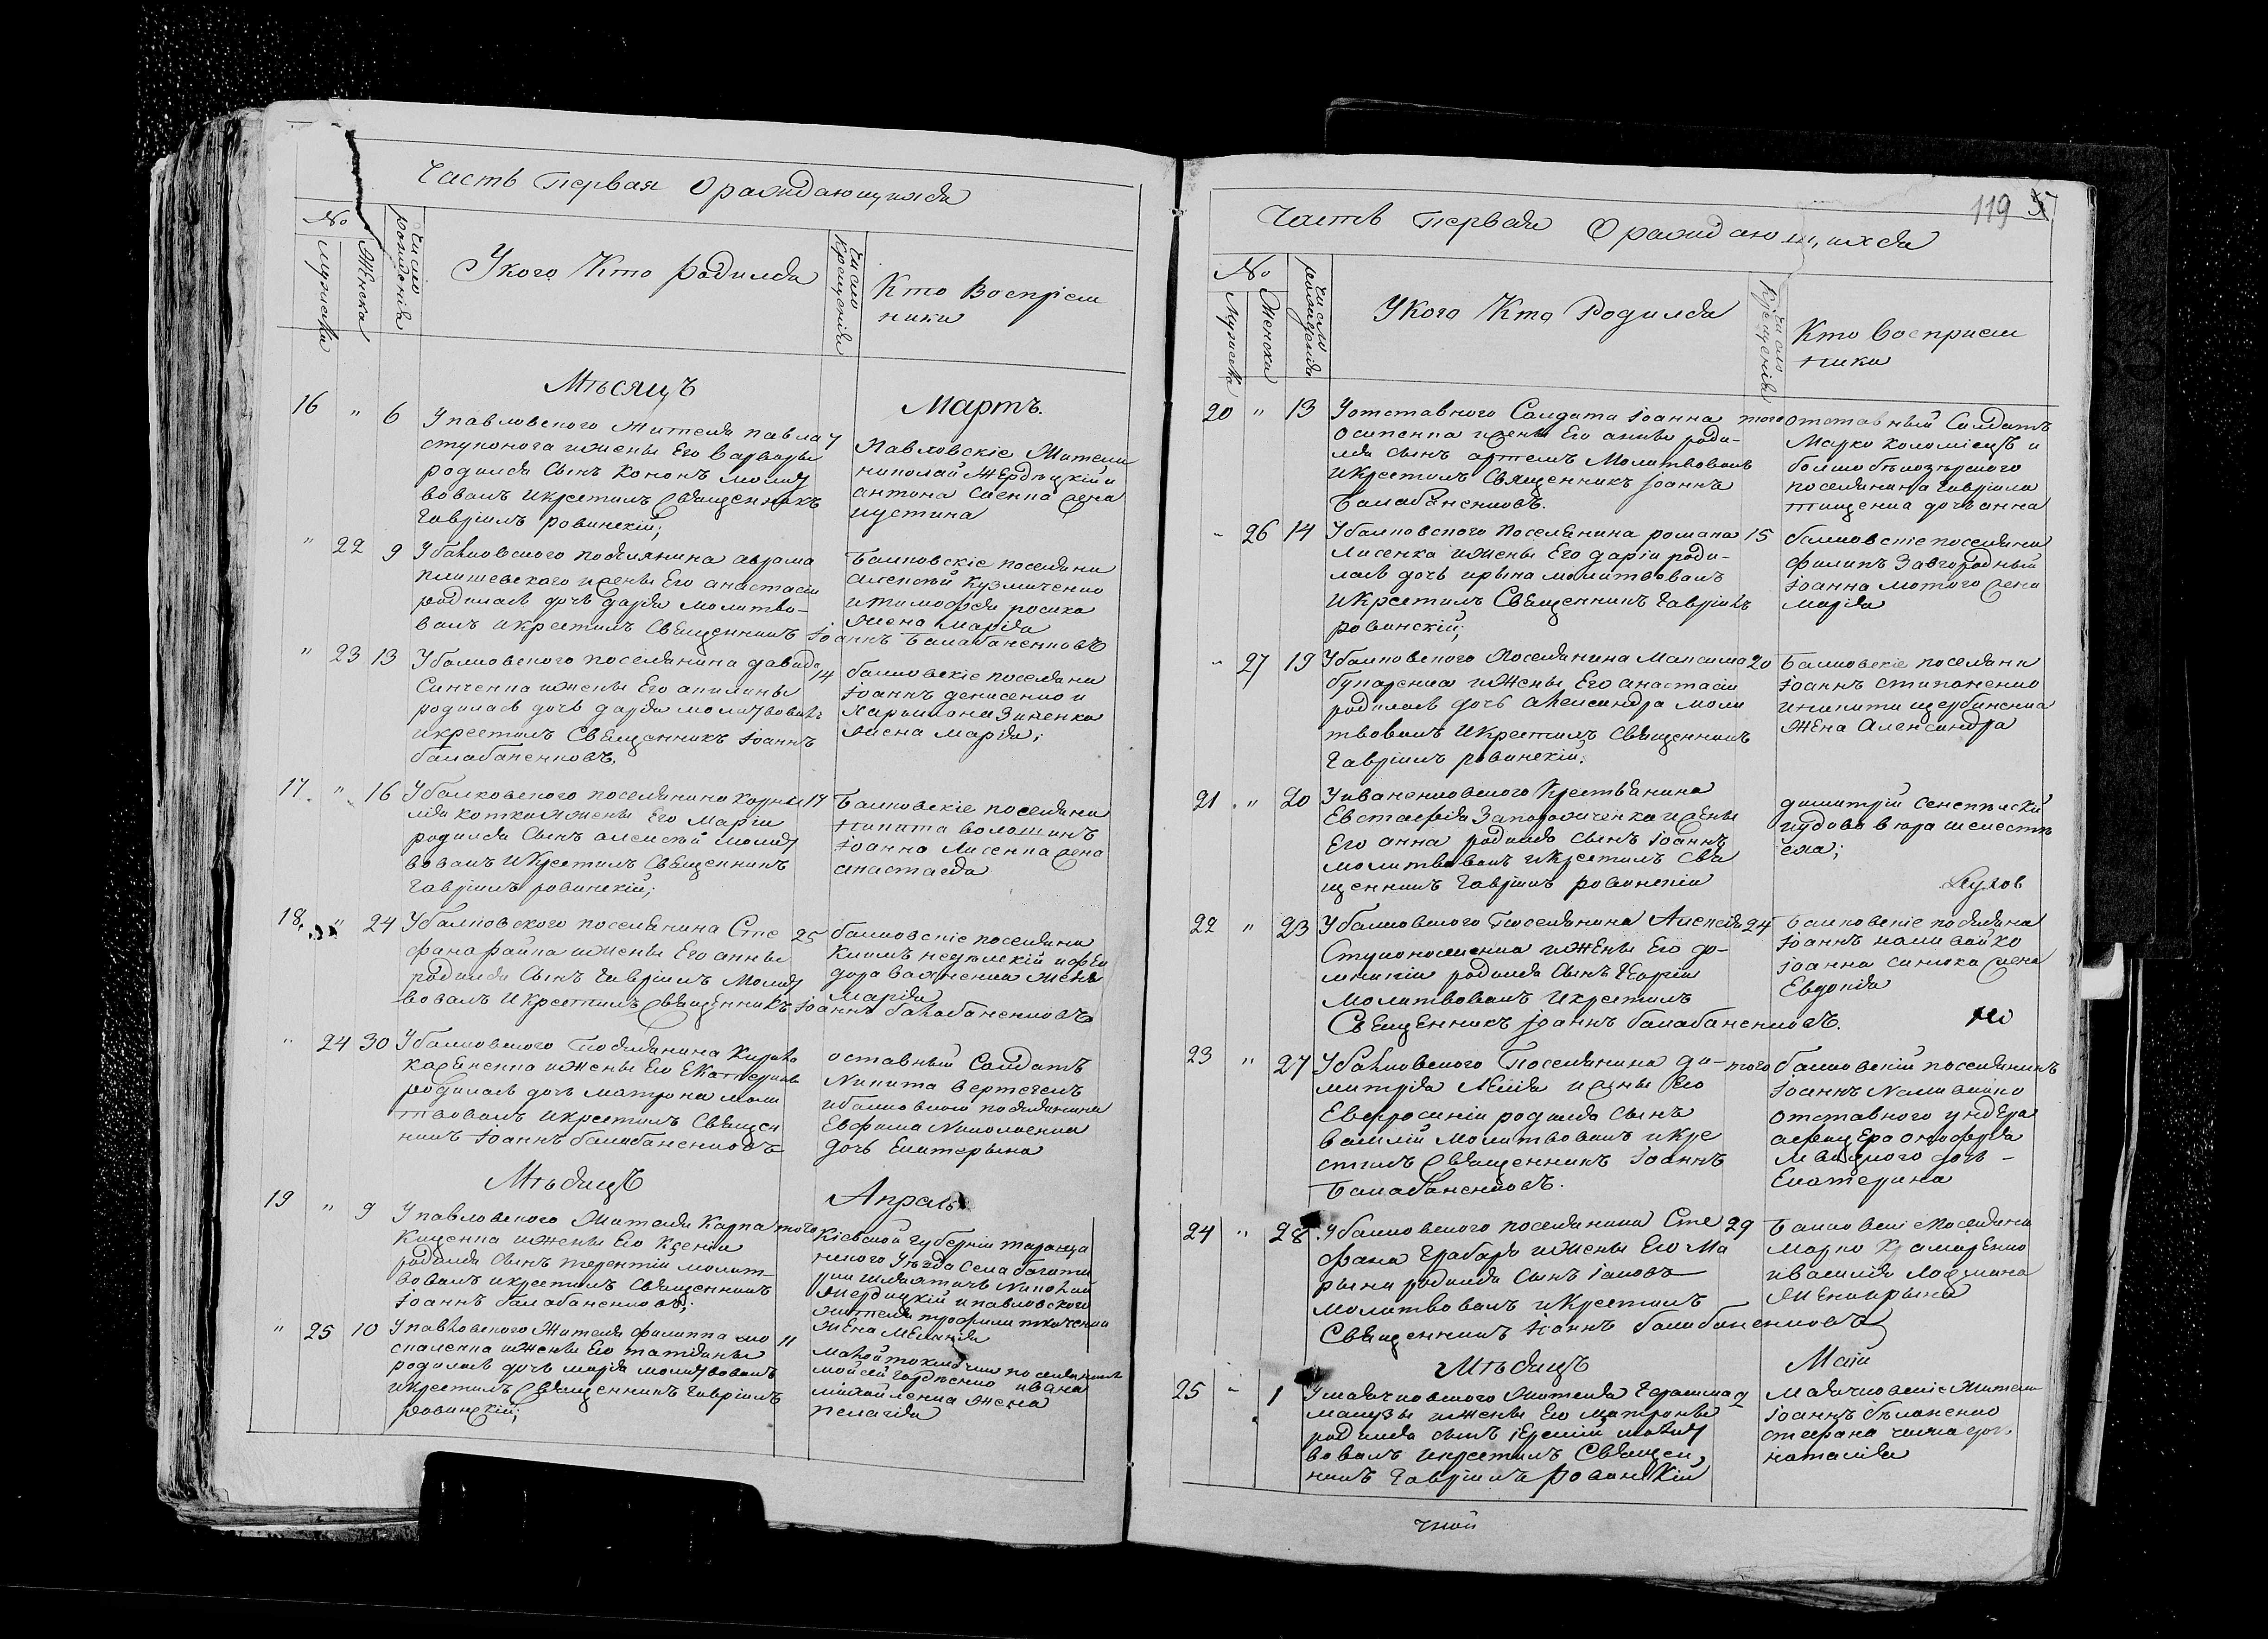 Часть первая О раждающихся
№
Мужеска
Женска
Число рожденія
У кого Кто родился
Число Крещенія
Кто Воспріем
ники
Мѣсяцъ
Мартъ.
16 " 6
У павловского Жителя павла 7
ступонога и жены Его варвары
родился Сынъ Кононъ молит
вовалъ и крестилъ Священникъ
Гавріилъ ровинскій;
Павловскіе Жители
николай Жердецкій и
антона Саенка жена
иустина
" 22 9
У балковского поселянина аврама
плишевского и жены Его анастасіи
родилась дочь дарія молитво-
валъ и крестилъ Священникъ Іоаннъ Балабаненковъ
Балковскіе поселяни
алексѣй Кузмиченко
и тимофея носика
жена Марія
" 23 13
У балковского поселянина давида 14
Синченка и жены Его акилины
родилась дочь дарія молитвовалъ
и крестилъ Священникъ Іоаннъ
балабаненковъ,
балковскіе поселяни
Іоаннъ денисенко и
Харитона Зиненка
жена Марія;
17. " 16
У балковского поселянина корни 17
лія котка и жены Его Маріи
родился Сынъ алексѣй молит
вовалъ и Крестилъ Священникъ
Гавріилъ ровинскій;
Балковскіе поселяни
никита волошинъ
Іоанна Лисенка жена
анастасія
18. " 24
У балковского поселянина Сте 25
фана файпа и жены Его анны
родился Сынъ Гавріилъ Молит
вовалъ и Крестилъ Священникъ Іоаннъ балабаненковъ
балковскіе поселяни
Климъ недѣлскій и фео
дора важненка жена
Марія
" 24 30
У балковского Поселянина Кирила
карѣненка и жены Его Екатерины
родилась дочь матрона моли
твовалъ и крестилъ Священ
никъ Іоаннъ балабаненковъ
оставный Солдатъ
Никита вертегелъ
и балковского поселянина
Евфима Николаенка
дочь Екатерина
Мѣсяцъ
Апрель
19 " 9
У павловского Жителя Карпа того
Киценка и жены Его Ксеніи
родился Сынъ терентій молит
вовалъ и крестилъ Священникъ
Іоаннъ балабаненковъ;
Кіевской губерніи тараща
нского Уѣзда Села богати
рки шляхтичъ Николай
Жердицкій и павловского
жителя трофима ткаченка
Жена Меланія
" 25 10
У павловского Жителя филиппа мо 11
скаленка и жены Его татіаны
родилась дочь марія молитвовалъ
и крестилъ Священникъ Гавріилъ
ровинскій;
малой токмачки поселянинъ
мойсей гордѣенко ивана
михайленка жена
пелагія
Часть Первая О раждающихся
119
№
Мужеска
Женска
Число рожденія
У кого Кто Родился
Число Крещенія
Кто Восприем
ники
20 " 13
У отставного Салдата Іоанна того
Осипенка и жены Его анны роди-
лся сынъ артемъ Молитвовалъ
и Крестилъ Священникъ Іоаннъ
Балабаненковъ.
отставный Солдатъ
Марко коломіецъ и
болшо бѣлозѣрского
поселянина Гавріила
тищенка дочь анна
" 26 14
У балковского Поселянина романа 15
Лисенка и жены Его даріи роди-
лась дочь ирына молитвовалъ
и Крестилъ Священникъ Гавріилъ
ровинскій;
балковскіе поселяни
филипъ Завгородный
Іоанна мотого жена
Марія
" 27 19
У балковского Поселянина Максима 20
бупаренка и Жены Его анастасіи
родилась дочь александра моли
твовалъ и Крестилъ Священникъ
Гавріилъ ровинскій.
Балковскіе поселяни
Іоаннъ стипаненко
и никити щербиненка
Жена Александра
21 . " 20
У иваненковского Крестьянина
Евстафія Запорожченка и жены
Его анна родился Сынъ Іоаннъ
молитвовалъ и крестилъ Свя
щенникъ Гавріилъ ровинскій
димитрій
22 " 23
У балковского Поселянина Алексѣя 24
Ступоношенка и Жены Его до-
мникіи родился Сынъ Георгій
Молитвовалъ и Крестилъ
Священникъ Іоаннъ балабаненковъ.
Балковскіе поселяна
Іоаннъ наливайко
Іоанна синька жена
Евдокія
23 " 27
У балковского Поселянина ди- того
митрія Лялія и жены Его
Евфросиніи родился Сынъ
василій Молитвовалъ и Кре
стилъ Священникъ Іоаннъ
Балабаненковъ.
балковскій поселянинъ
Іоаннъ Наливайко
Отставного ундера
афицера онофрія
дочь -
Екатерина
24 " 28
У балковского поселянина Сте 29
фана Грабаря и жены Его Ма
рыни родился Сынъ іаковъ
Молитвовалъ и Крестилъ
Священникъ Іоаннъ балабаненковъ
Балковскіе поселяни
Марко Крамаренко
и василія Лоцмана
Жена ирына
Мѣсяцъ
Май
25 " 1
У маячковского Жителя Ефрима 2
мацузы и жены Его матроны
родился сынъ іеремій молит
вовалъ и крестилъ Священ
никъ Гавріилъ Ровинскій
Маячковскіе Жители
Іоаннъ бѣлоненко
стефана дочь
наталія